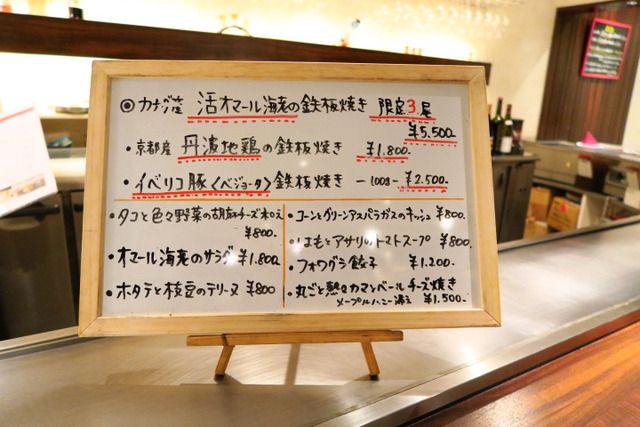 ◎カナダ産 活オマール海老の鉄板焼き 限定3尾
¥5,500.
・京都産 丹波地鶏の鉄板焼き ¥1,800.
・イベリコ豚<ベジョータ>鉄板焼き —100g— ¥2,500.
・タコと色々野菜の胡麻チーズ和え
¥800.
・オマール海老のサラダ ¥1,800.
・ホタテと枝豆のテリーヌ ¥800
・コーンとグリーンアスパラガスのキッシュ ¥800.
・はもとアサリのトマトスープ ¥800.
・フォワグラ餃子 ¥1,200.
・丸ごと熱々カマンベールチーズ焼き
メープルハニー添え ¥1,500.